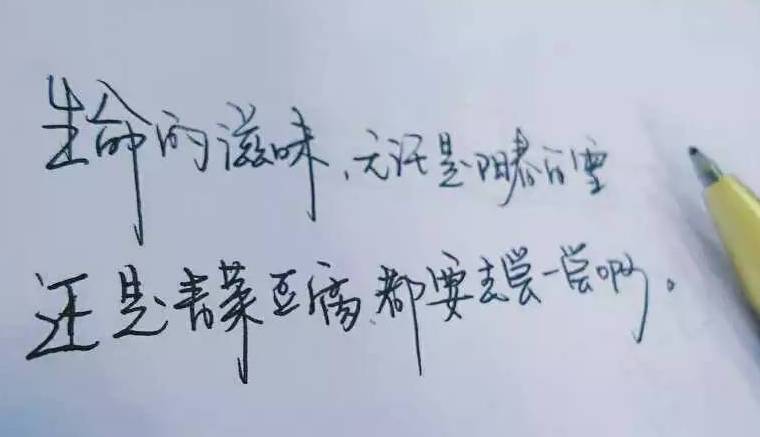 生命的滋味、无论是阳春白雪
还是青菜豆腐、都要去尝一尝啊。